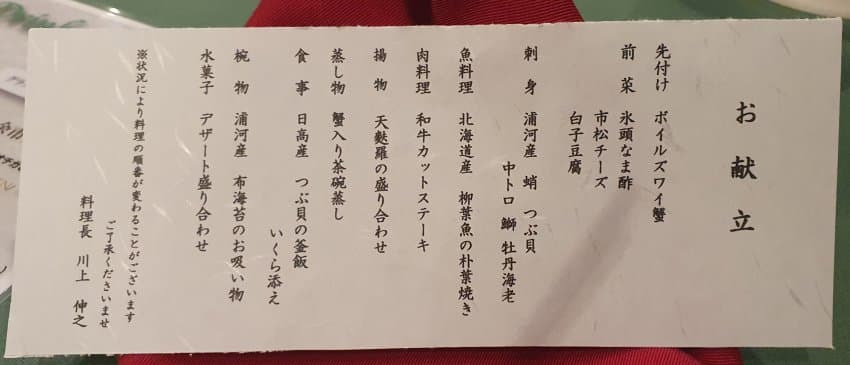 お献立
先付け　ボイルズワイ蟹
前菜　氷頭なま酢
市松チーズ
白子豆腐
刺身　浦河産　蛸　つぶ貝
中トロ　鰤　牡丹海老
魚料理　北海道産　柳葉魚の朴葉焼き
肉料理　和牛カットステーキ
揚物　天麩羅の盛り合わせ
蒸し物　蟹入り茶碗蒸し
食事　日高産　つぶ貝の釜飯
いくら添え
椀物　浦河産　布海苔のお吸い物
水菓子　デザート盛り合わせ
※状況により料理の順番が変わることがございます
ご了承くださいませ
料理長　川上　伸之